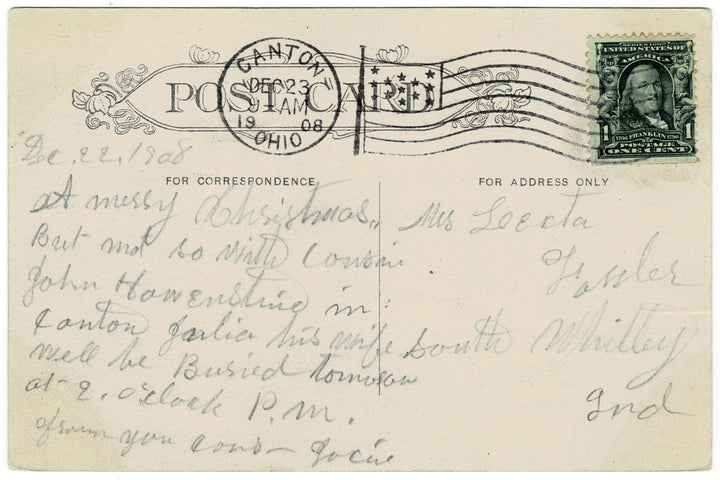 CANTON
DEC 23
AM
1908
OHIO
SERIES 1902
UNITED STATES OF
AMERICA
1 1706 FRANKLIN 1790 1
POSTAGE
ONE CENT
POST CARD
Dec. 22, 1908
FOR CORRESPONDENCE
A merry Christmas,
But not so with Cousin
John Howenstine in
Canton Julia his wife
will be Buried tomorow
at 2. O'clock P.M.
from you cous- 
FOR ADDRESS ONLY
Mrs
Fossler
South Whitley
Ind